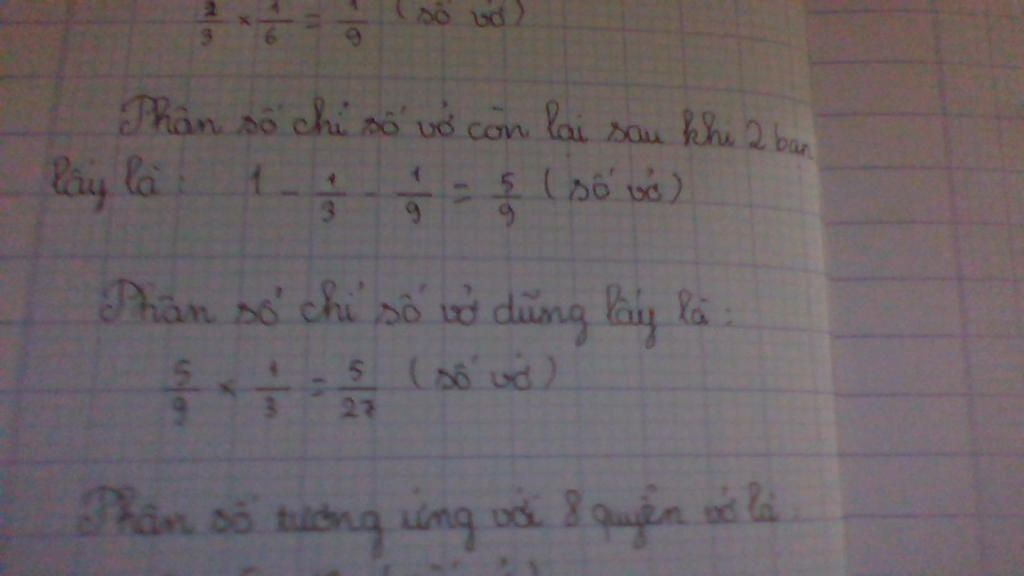 2/3 × 1/6 = 1/9 (số vở)
Phân số chỉ số vở còn lại sau khi 2 bạn
lấy là: 1 - 1/3 - 1/9 = 5/9 (số vở)
Phân số chỉ số vở dũng lấy là:
5/9 × 1/3 = 5/27 (số vở)
Phân số tương ứng với 8 quyển vở là